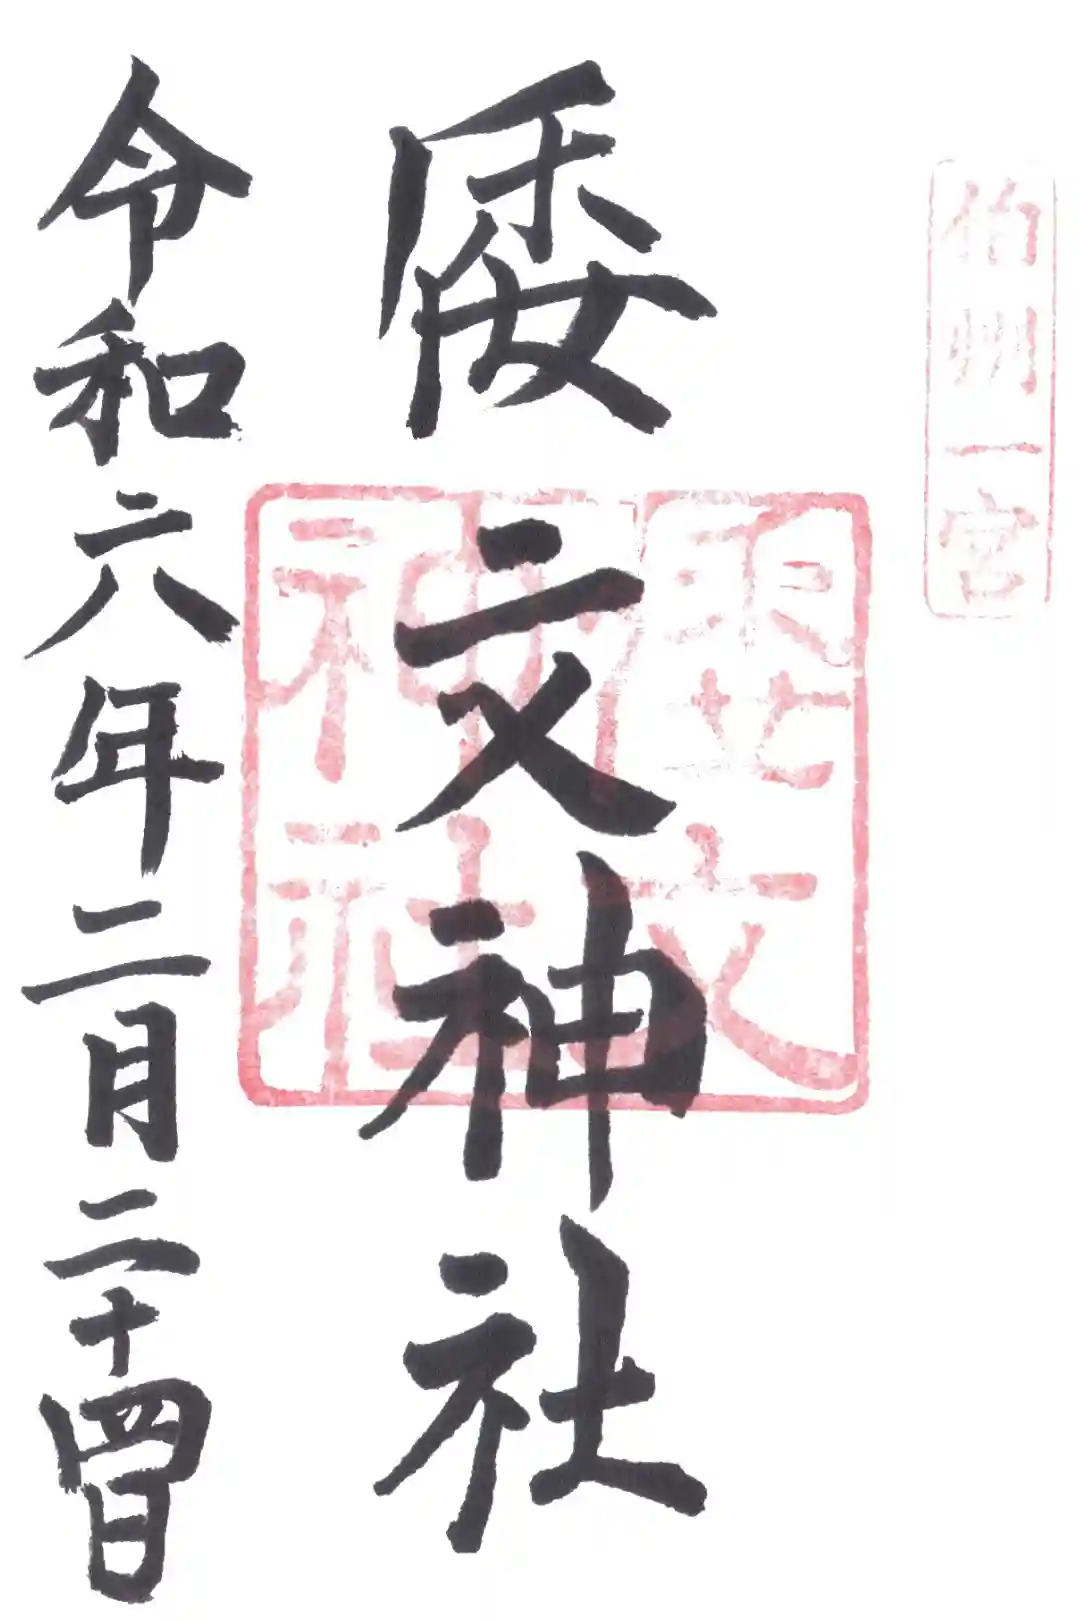 伯州一宮
倭文神社
文
神社
令和六年二月二十四日